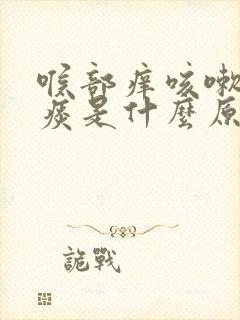 喉部痒咳嗽
痰是什麼原
詭戰